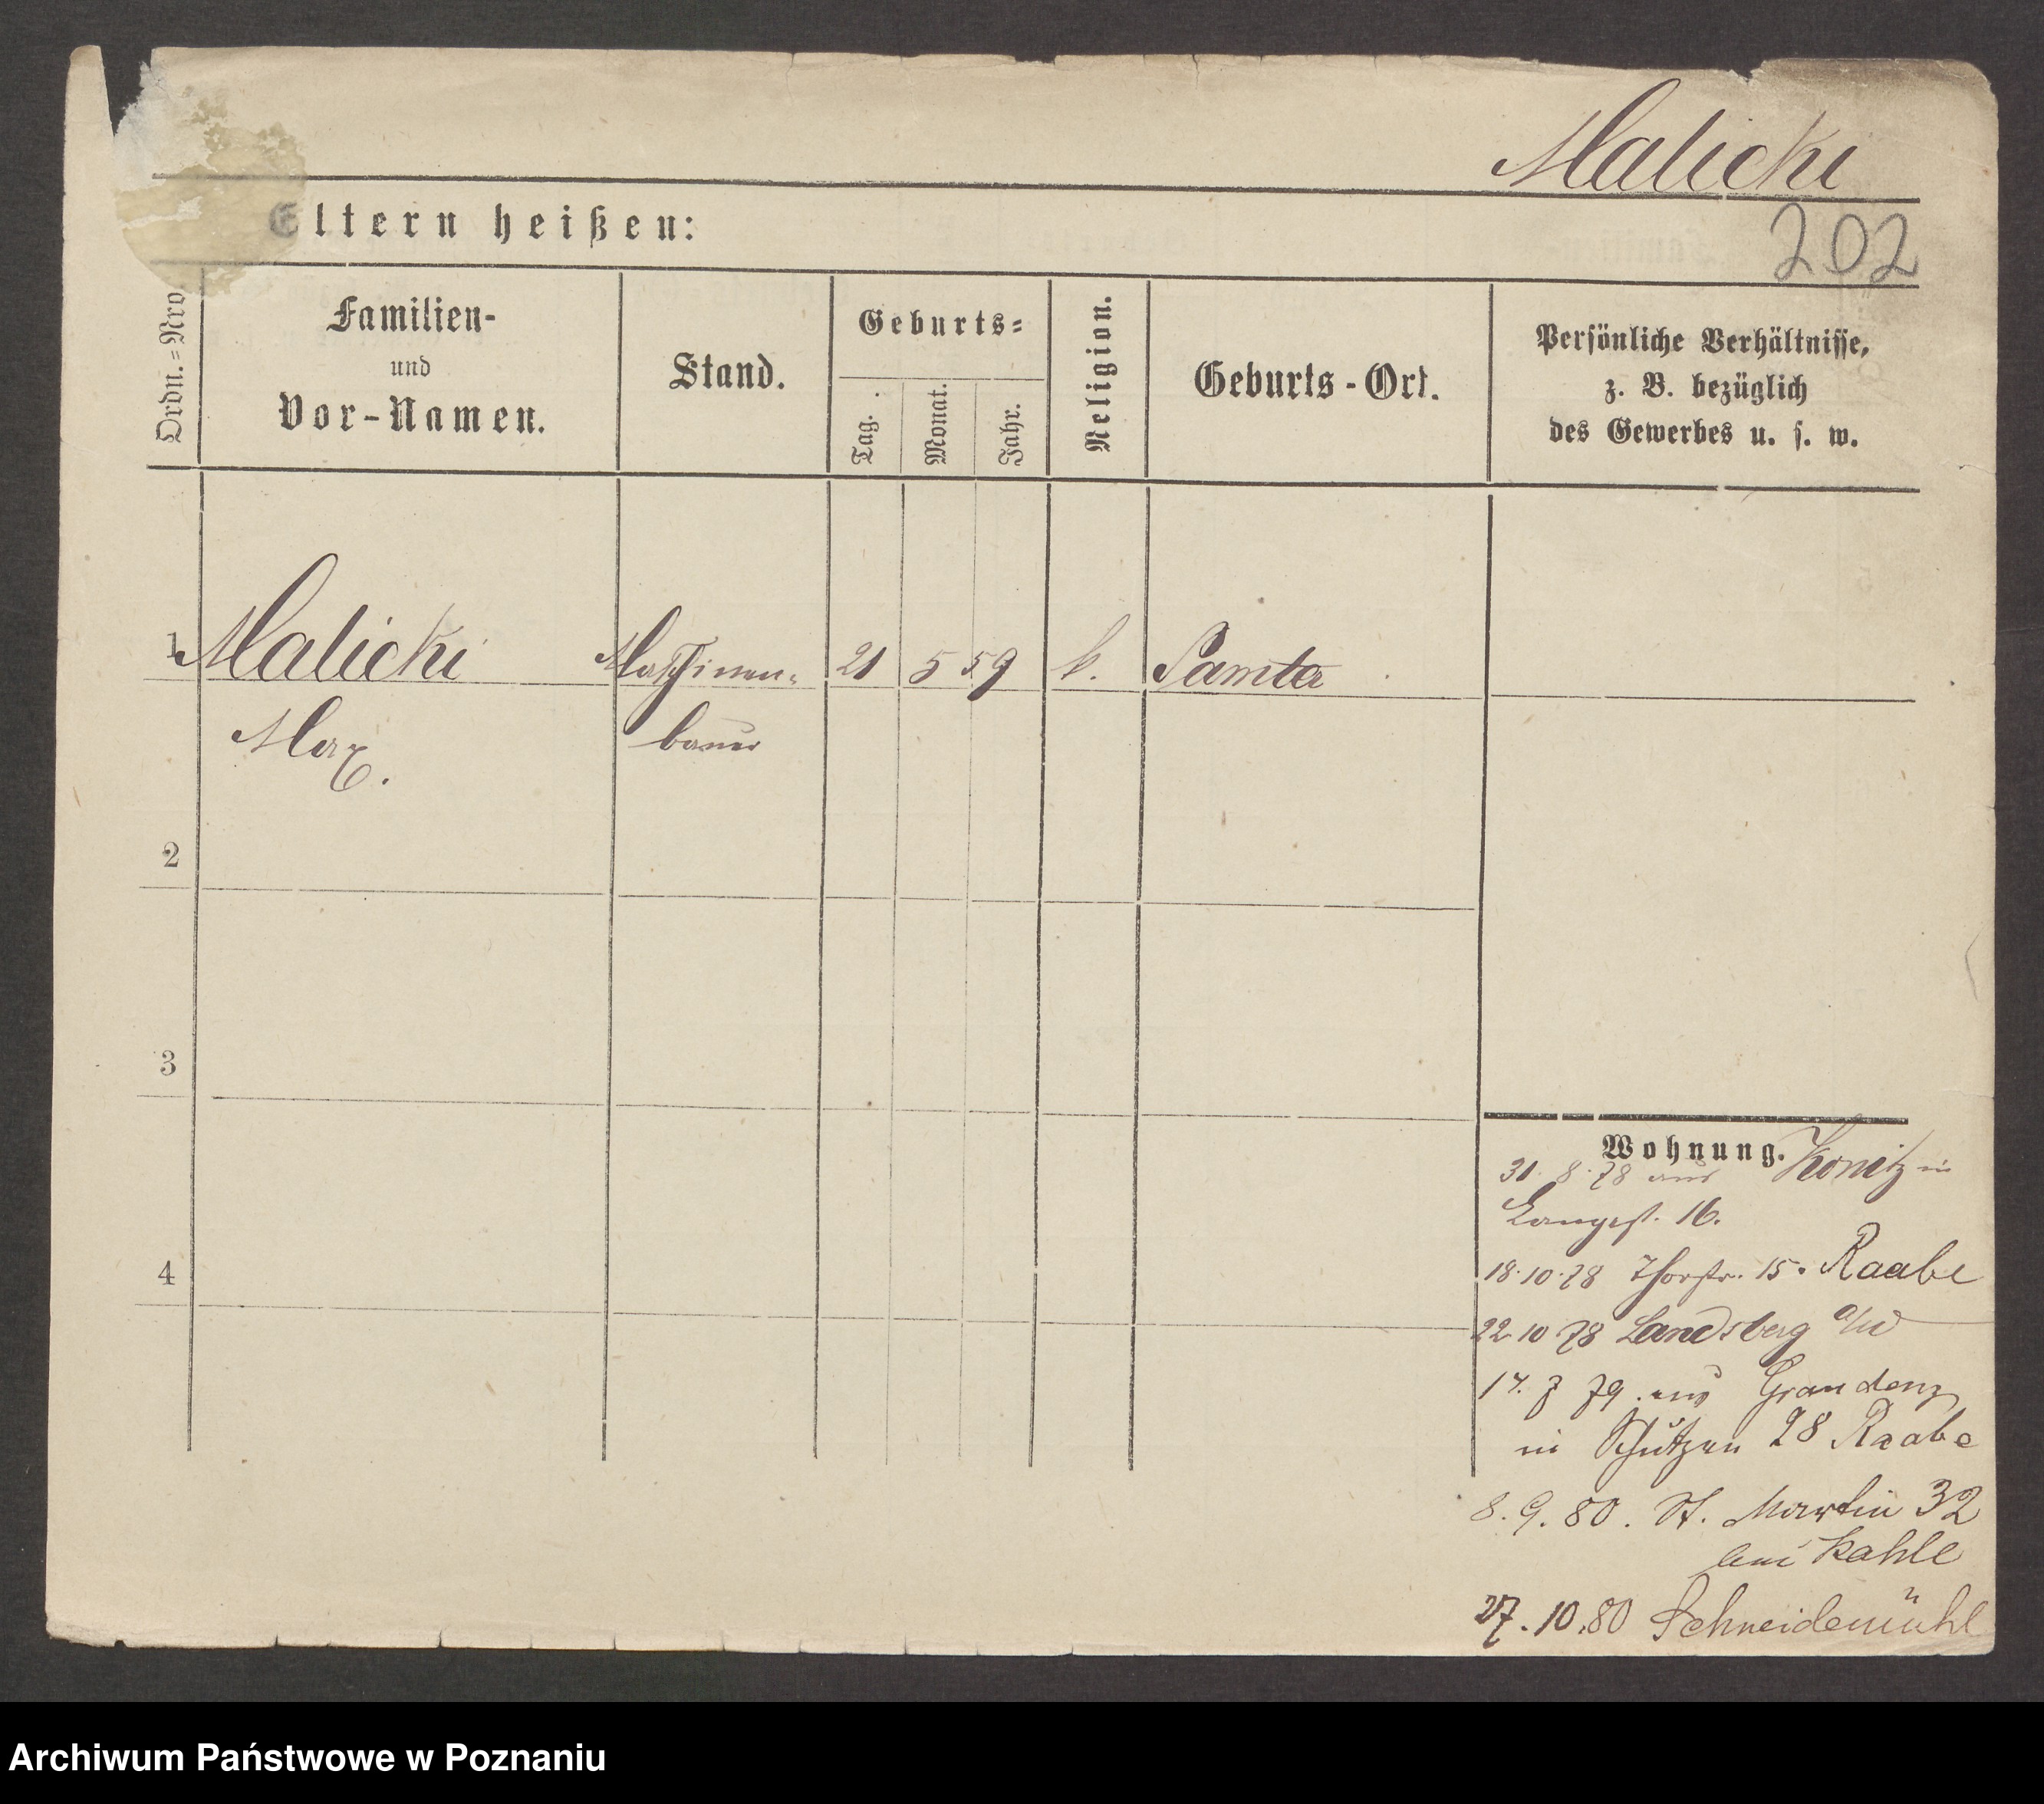 Malicki
202
Eltern heißen:
Ordn.=Nro.
Familien-
und
Vor-Namen.
Stand.
Geburts=
Tag.
Monat.
Jahr.
Religion.
Geburts-Ort.
Persönliche Verhältnisse,
z. B. bezüglich
des Gewerbes u. s. w.
1 Malicki Maschinen= 21 5 59 k. Samta
Max. bauer
2
3
4
Wohnung.
31. 8. 78 aus Konitz in
Langest. 16.
18.10.78 Thorstr. 15. Raabe
22.10 78 Landsberg a/W
17. 7 79. aus Graudenz
in Schützen 28 Raabe
8. 9. 80. St. Martin 32
bei Kahle
27. 10. 80 Schneidemühl
Archiwum Państwowe w Poznaniu